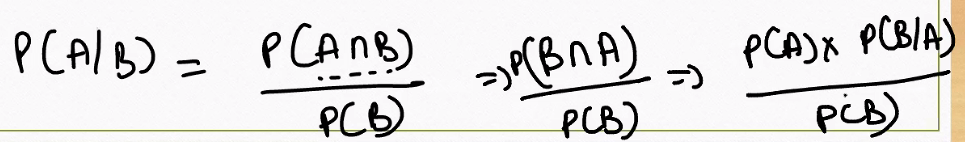 P(A/B) = P(A∩B) / P(B) => P(B∩A) / P(B) => P(A) x P(B/A) / P(B)